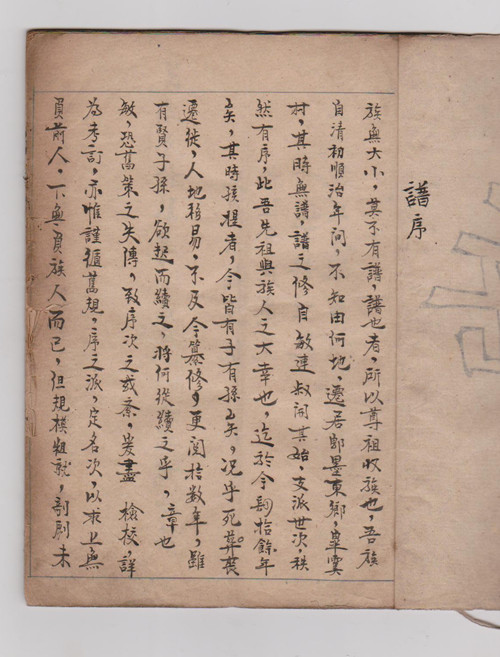 譜序
族無大小，莫不有譜，譜也者，所以尊祖收族也，吾族
自清初順治年间，不知由何地，遷居即墨東鄉，皐虞
村，其時無譜，譜之修自敏達叔開其始，支派世次，秩
然有序，此吾先祖與族人之大幸也，迄於今朙拾餘年
矣，其時孩提者，今皆有子有孫矣，况乎死葬喪
遷徙，人地移易，不及今纂修，更閱拾数年，雖
有賢子孫，欲起而續之，將何從續之乎，章也
敏，恐舊策之失傳，致序次之或紊，爰盡 檢校，詳
為考訂，亦惟謹循舊規，序之派，定名次，以求上無
負前人，下無負族人而已，但規模粗就，剞劂未